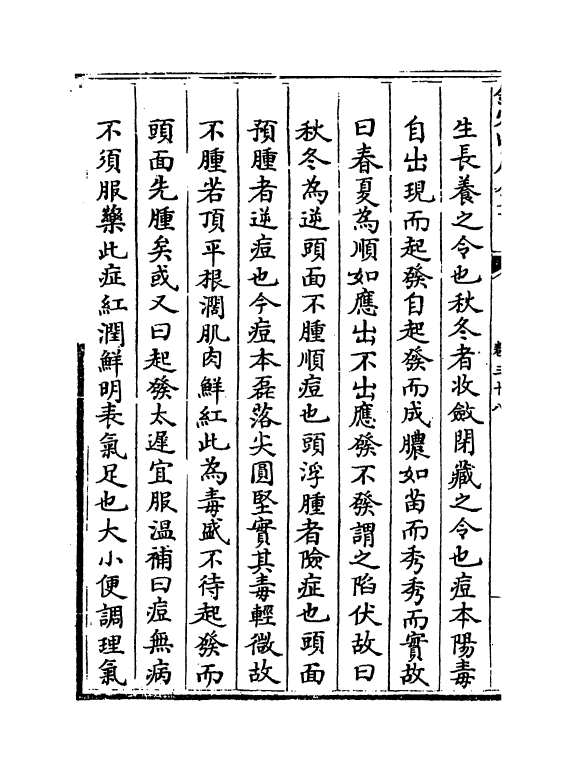 生長養之令也秋冬者收斂閉藏之令也痘本陽毒
自出現而起發自起發而成膿如苗而秀秀而實故
曰春夏為順如應出不出應發不發謂之陷伏故曰
秋冬為逆頭面不腫順痘也頭浮腫者險症也頭面
預腫者逆痘也今痘本磊落尖圓堅實其毒輕微故
不腫若頂平根濶肌肉鮮紅此為毒盛不待起發而
頭面先腫矣或又曰起發太遲宜服温補曰痘無病
不須服藥此症紅潤鮮明表氣足也大小便調理氣